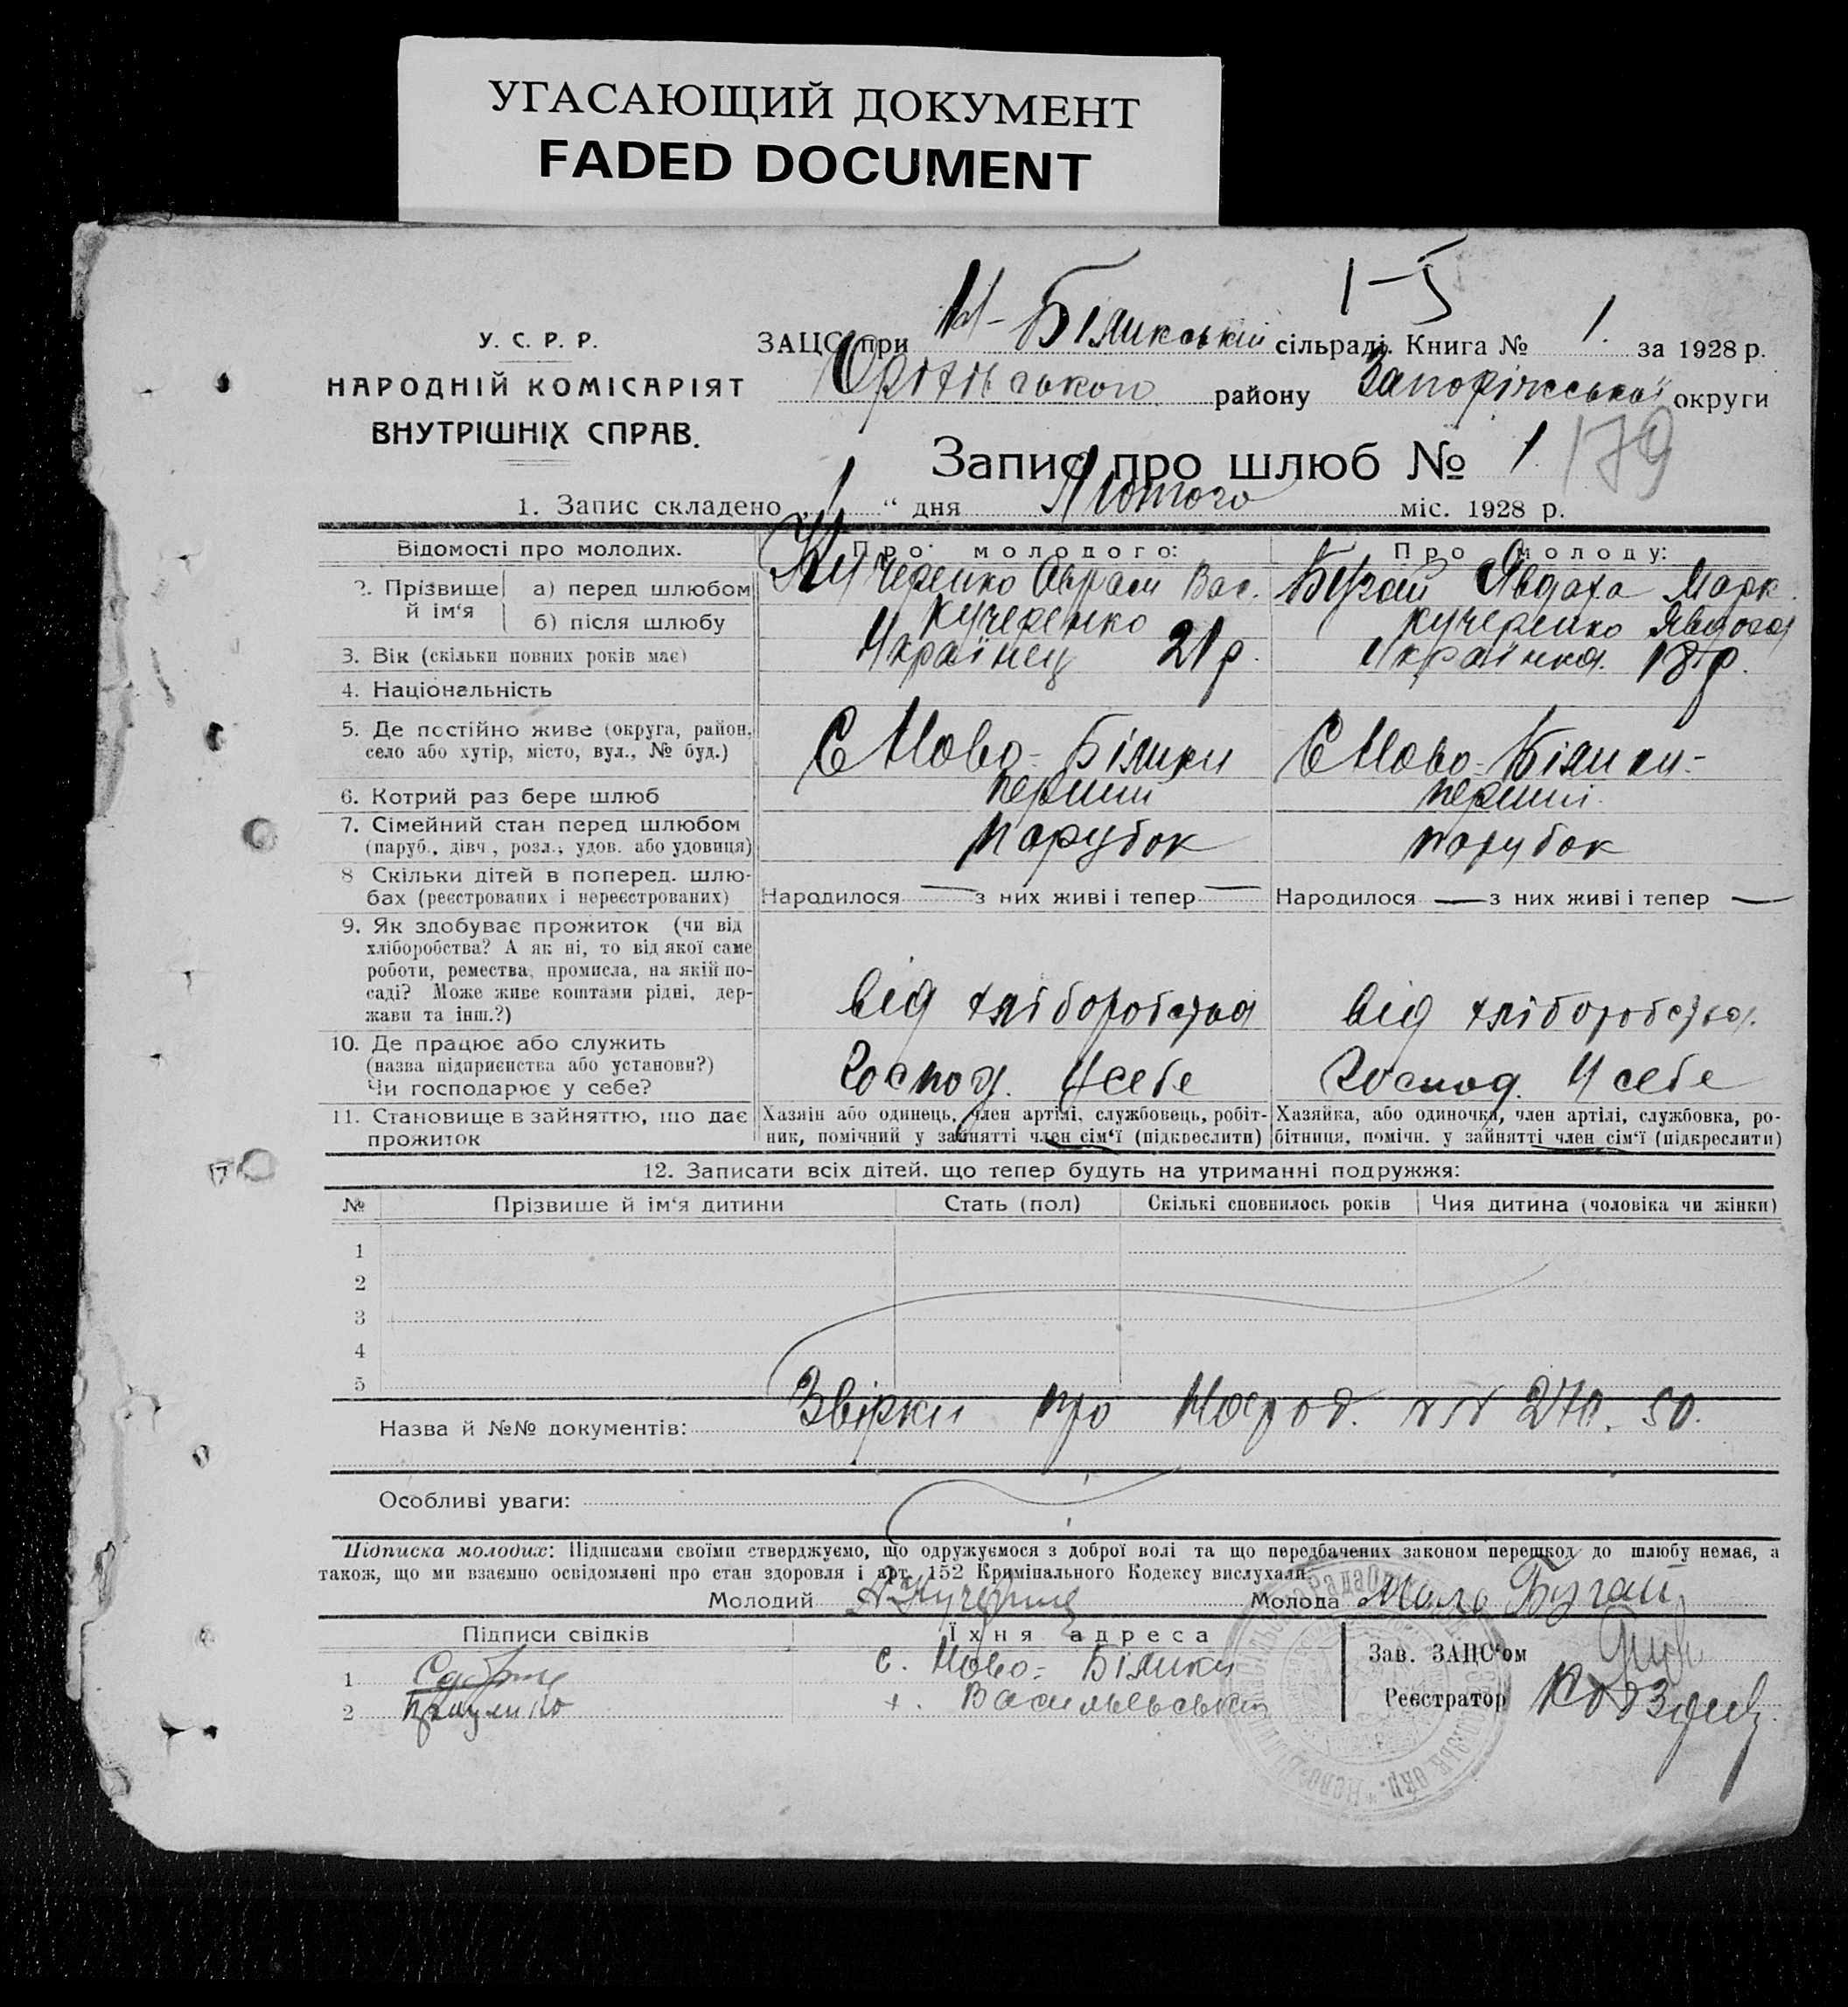 УГАСАЮЩИЙ ДОКУМЕНТ
FADED DOCUMENT
1-5
У. С. Р. Р.
НАРОДНІЙ КОМІСАРІЯТ
ВНУТРІШНІХ СПРАВ.
ЗАЦС при Н-Біликській сільраді. Книга № 1. за 1928 р.
Оріхівського району Запоріжської округи
Запис про шлюб № 1. 179
1. Запис складено „1“ дня Лютого міс. 1928 р.
Відомості про молодих. Про молодого: Про молоду:
2. Прізвище й ім‘я а) перед шлюбом Кучеренко Аврам Вас. Бугай Явдоха Марк.
б) після шлюбу Кучеренко Кучеренко Явдоха
3. Вік (скільки повних років має) Українец 21 р. Українка. 18 р.
4. Національність
5. Де постійно живе (округа, район, С Ново-Білики С Ново-Білики-
село або хутір, місто, вул., № буд.)
6. Котрий раз бере шлюб перший перший
7. Сімейний стан перед шлюбом парубок парубок
(паруб., дівч., розл., удов. або удовиця)
8 Скільки дітей в поперед. шлю-
бах (реєстрованих і нереєстрованих) Народилося — з них живі і тепер — Народилося — з них живі і тепер —
9. Як здобуває прожиток (чи від
хліборобства? А як ні, то від якої саме
роботи, ремества, промисла, на якій по-
саді? Може живе коштами рідні, дер- від хліборобства від хліборобства.
жави та інш.?)
10. Де працює або служить
(назва підприєнства або установи?) Господ. У себе Господ. У себе
Чи господарює у себе?
11. Становище в зайняттю, що дає Хазяін або одинець, член артілі, службовець, робіт- Хазяйка, або одиночка, член артілі, службовка, ро-
прожиток ник, помічний у зайнятті член сім‘ї (підкреслити) бітниця, помічн. у зайнятті член сім‘ї (підкреслити)
12. Записати всіх дітей. що тепер будуть на утриманні подружжя:
№ Прізвише й ім‘я дитини Стать (пол) Скількі сповнилось років Чия дитина (чоловіка чи жінки)
1
2
3
4
5
Назва й №№ документів: Звірки про Народ. 270. 50.
Особливі уваги:
Підписка молодих: Підписами своїми стверджуємо, що одружуємося з доброї волі та що передбачених законом перешкод до шлюбу немає, а
також, що ми взаємно освідомлені про стан здоровля і арт. 152 Кримінального Кодексу вислухали.
Молодий Молода Бугай
Підписи свідків Їхня адреса Зав. ЗАЦС‘ом
1 с. Ново-Білики
2 х. Васильевський Реєстратор